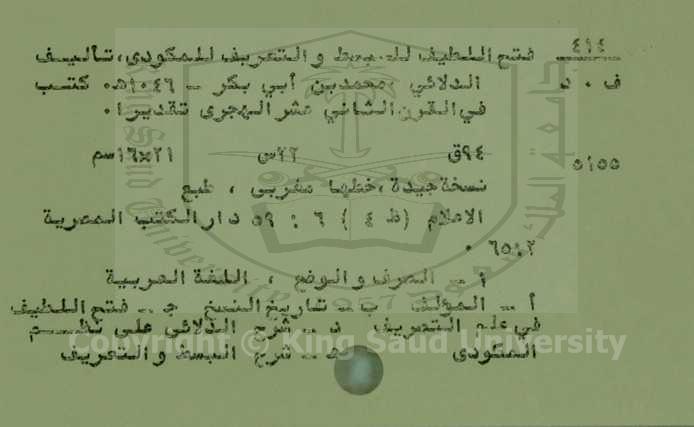 ٤١٤ فتح اللطيف للبسط والتعريف للمكودى، تأليف
ف ٠ د الدلائي، محمد بن أبي بكر - ١٠٤٦هـ٠ كتب
في القرن الثاني عشر الهجرى تقديرا ٠
٩٤ق ٢٢س ٢١×١٦سم
٥١٥٥
نسخة جيدة، خطها مغربى، طبع
الاعلام (ط ٤) ٦ : ٥٩ دار الكتب المصرية
٢:٦٥ ٠
أ - الصرف والوضع، اللغة العربية
أ - المؤلف ب - تاريخ النسخ ج - فتح اللطيف
في علم التصريف د - شرح الدلائى على نظم
المكودى هـ - شرح البسط والتعريف
Copyright © King Saud University
1957